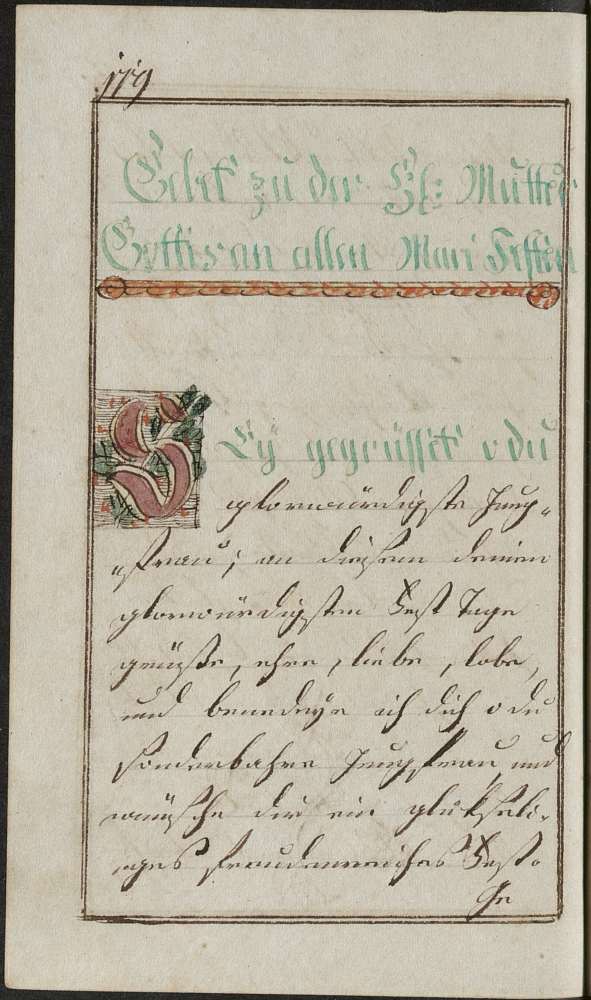 179
Gebet zu der Hl: Mutter
Gottes an allen Mari Festen
Sey gegrüsset o du
glorwürdigste Jung„
„frau, an diesem deinem
glorwürdigsten Fest Tage
grüsse, ehre, liebe, lobe,
und benedeye ich dich o du
sonderbahre Jungfrau, und
wünsche dir ein glükseli„
ges freudenreiches Fest.
Ge